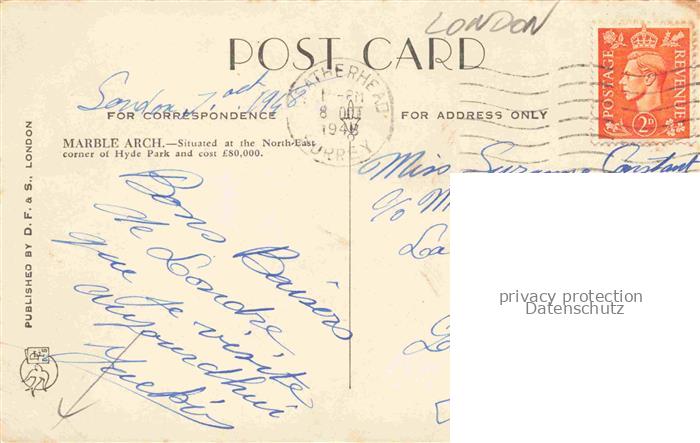 LONDON
POST CARD
POSTAGE REVENUE
2D
LEATHERHEAD
8 OCT
1948
SURREY
London 7 oct 1948
FOR CORRESPONDENCE
FOR ADDRESS ONLY
MARBLE ARCH.—Situated at the North-East
corner of Hyde Park and cost £80,000.
Bons Baisers
de Londre
que je visite
aujourdhui
Miss Suzanne Constant
c/o M
La
PUBLISHED BY D. F. & S., LONDON
privacy protection
Datenschutz